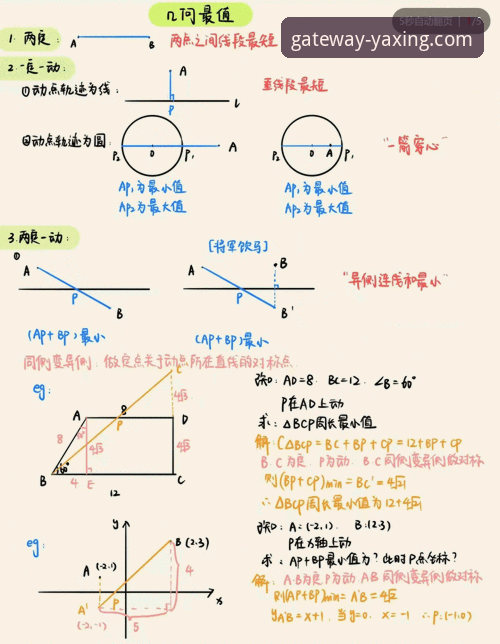 几何最值
5秒自动翻页
gateway-yaxing.com
1. 两定:
A B
两点之间线段最短
2. 一定一动:
①动点轨迹为线:
A
P
l
垂线段最短
②动点轨迹为圆:
P₂ O P₁ A
P₂ O A P₁
"一箭穿心"
AP₁为最小值
AP₂为最大值
AP₁为最小值
AP₂为最大值
3. 两定一动:
①
A
P
B
(AP+BP)最小
[将军饮马]
A
B
P
B'
(AP+BP)最小
"异侧连线和最小"
同侧变异侧,做定点关于动点所在直线的对称点
eg:
C'
4√3
8
A P D
8
4√3
4√3
60°
B 4 E C
12
已知: AD=8. BC=12. ∠B=60°
P在AD上动
求: △BCP周长最小值
解: C△BCP=BC+BP+CP=12+BP+CP
B.C为定.P为动.B.C同侧变异侧做对称
则(BP+CP)min=BC'=4√31
∴△BCP周长最小值为12+4√31
eg:
y
B(2.3)
A(-2.1)
4
P
x
A'
(-2,-1)
5
已知: A:(-2,1). B:(2.3)
P在x轴上动
求: AP+BP最小值为?此时P点坐标?
解: A.B为定P为动 AB同侧变异侧做对称
则(AP+BP)min=A'B=4√2
yA'B=x+1, 当y=0. x=-1 ∴P:(-1.0)